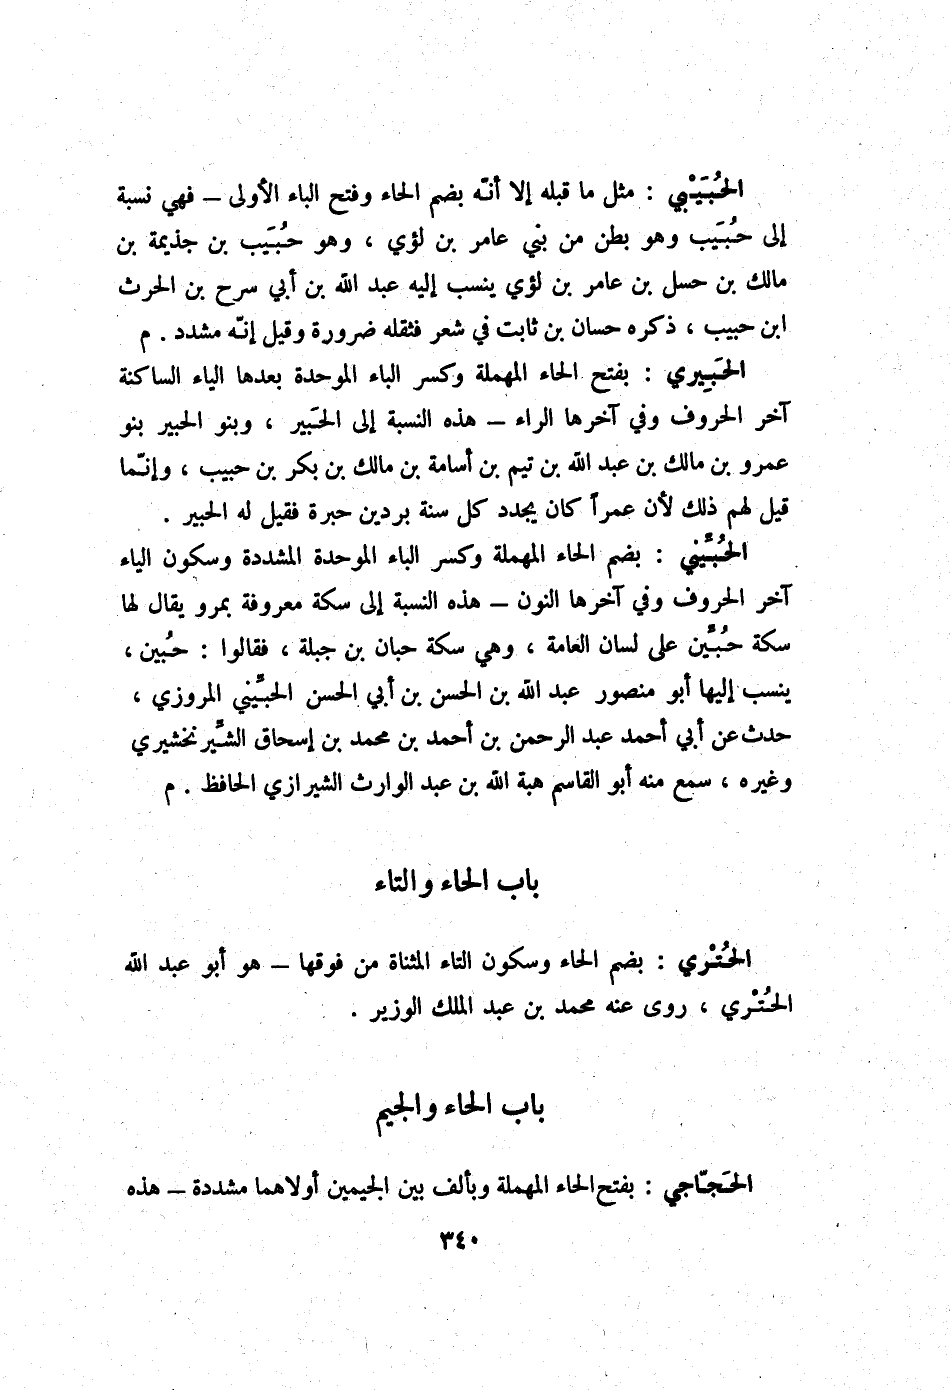 الحُبَيْبي : مثل ما قبله إلا أنّه بضم الحاء وفتح الباء الأولى – فهي نسبة
إلى حُبَيب وهو بطن من بني عامر بن لؤي ، وهو حُبَيب بن جذيمة بن
مالك بن حسل بن عامر بن لؤي ينسب إليه عبد الله بن أبي سرح بن الحرث
ابن حبيب ، ذكره حسان بن ثابت في شعر فثقله ضرورة وقيل إنّه مشدد . م
الحَبِيري : بفتح الحاء المهملة وكسر الباء الموحدة بعدها الياء الساكنة
آخر الحروف وفي آخرها الراء – هذه النسبة إلى الحَبير ، وبنو الحبير بنو
عمرو بن مالك بن عبد الله بن تيم بن أسامة بن مالك بن بكر بن حبيب ، وإنّما
قيل لهم ذلك لأن عمراً كان يجدد كل سنة بردين حبرة فقيل له الحبير .
الحُبِّيني : بضم الحاء المهملة وكسر الباء الموحدة المشددة وسكون الياء
آخر الحروف وفي آخرها النون – هذه النسبة إلى سكة معروفة بمرو يقال لها
سكة حُبِّين على لسان العامة ، وهي سكة حبان بن جبلة ، فقالوا : حُبين ،
ينسب إليها أبو منصور عبد الله بن الحسن بن أبي الحسن الحبِّيني المروزي ،
حدث عن أبي أحمد عبد الرحمن بن أحمد بن محمد بن إسحاق الشِّيرنخشيري
وغيره ، سمع منه أبو القاسم هبة الله بن عبد الوارث الشيرازي الحافظ . م
باب الحاء والتاء
الحُتْري : بضم الحاء وسكون التاء المثناة من فوقها – هو أبو عبد الله
الحُتْري ، روى عنه محمد بن عبد الملك الوزير .
باب الحاء والجيم
الحَجّاجي : بفتح الحاء المهملة وبألف بين الجيمين أولاهما مشددة – هذه
٣٤٠